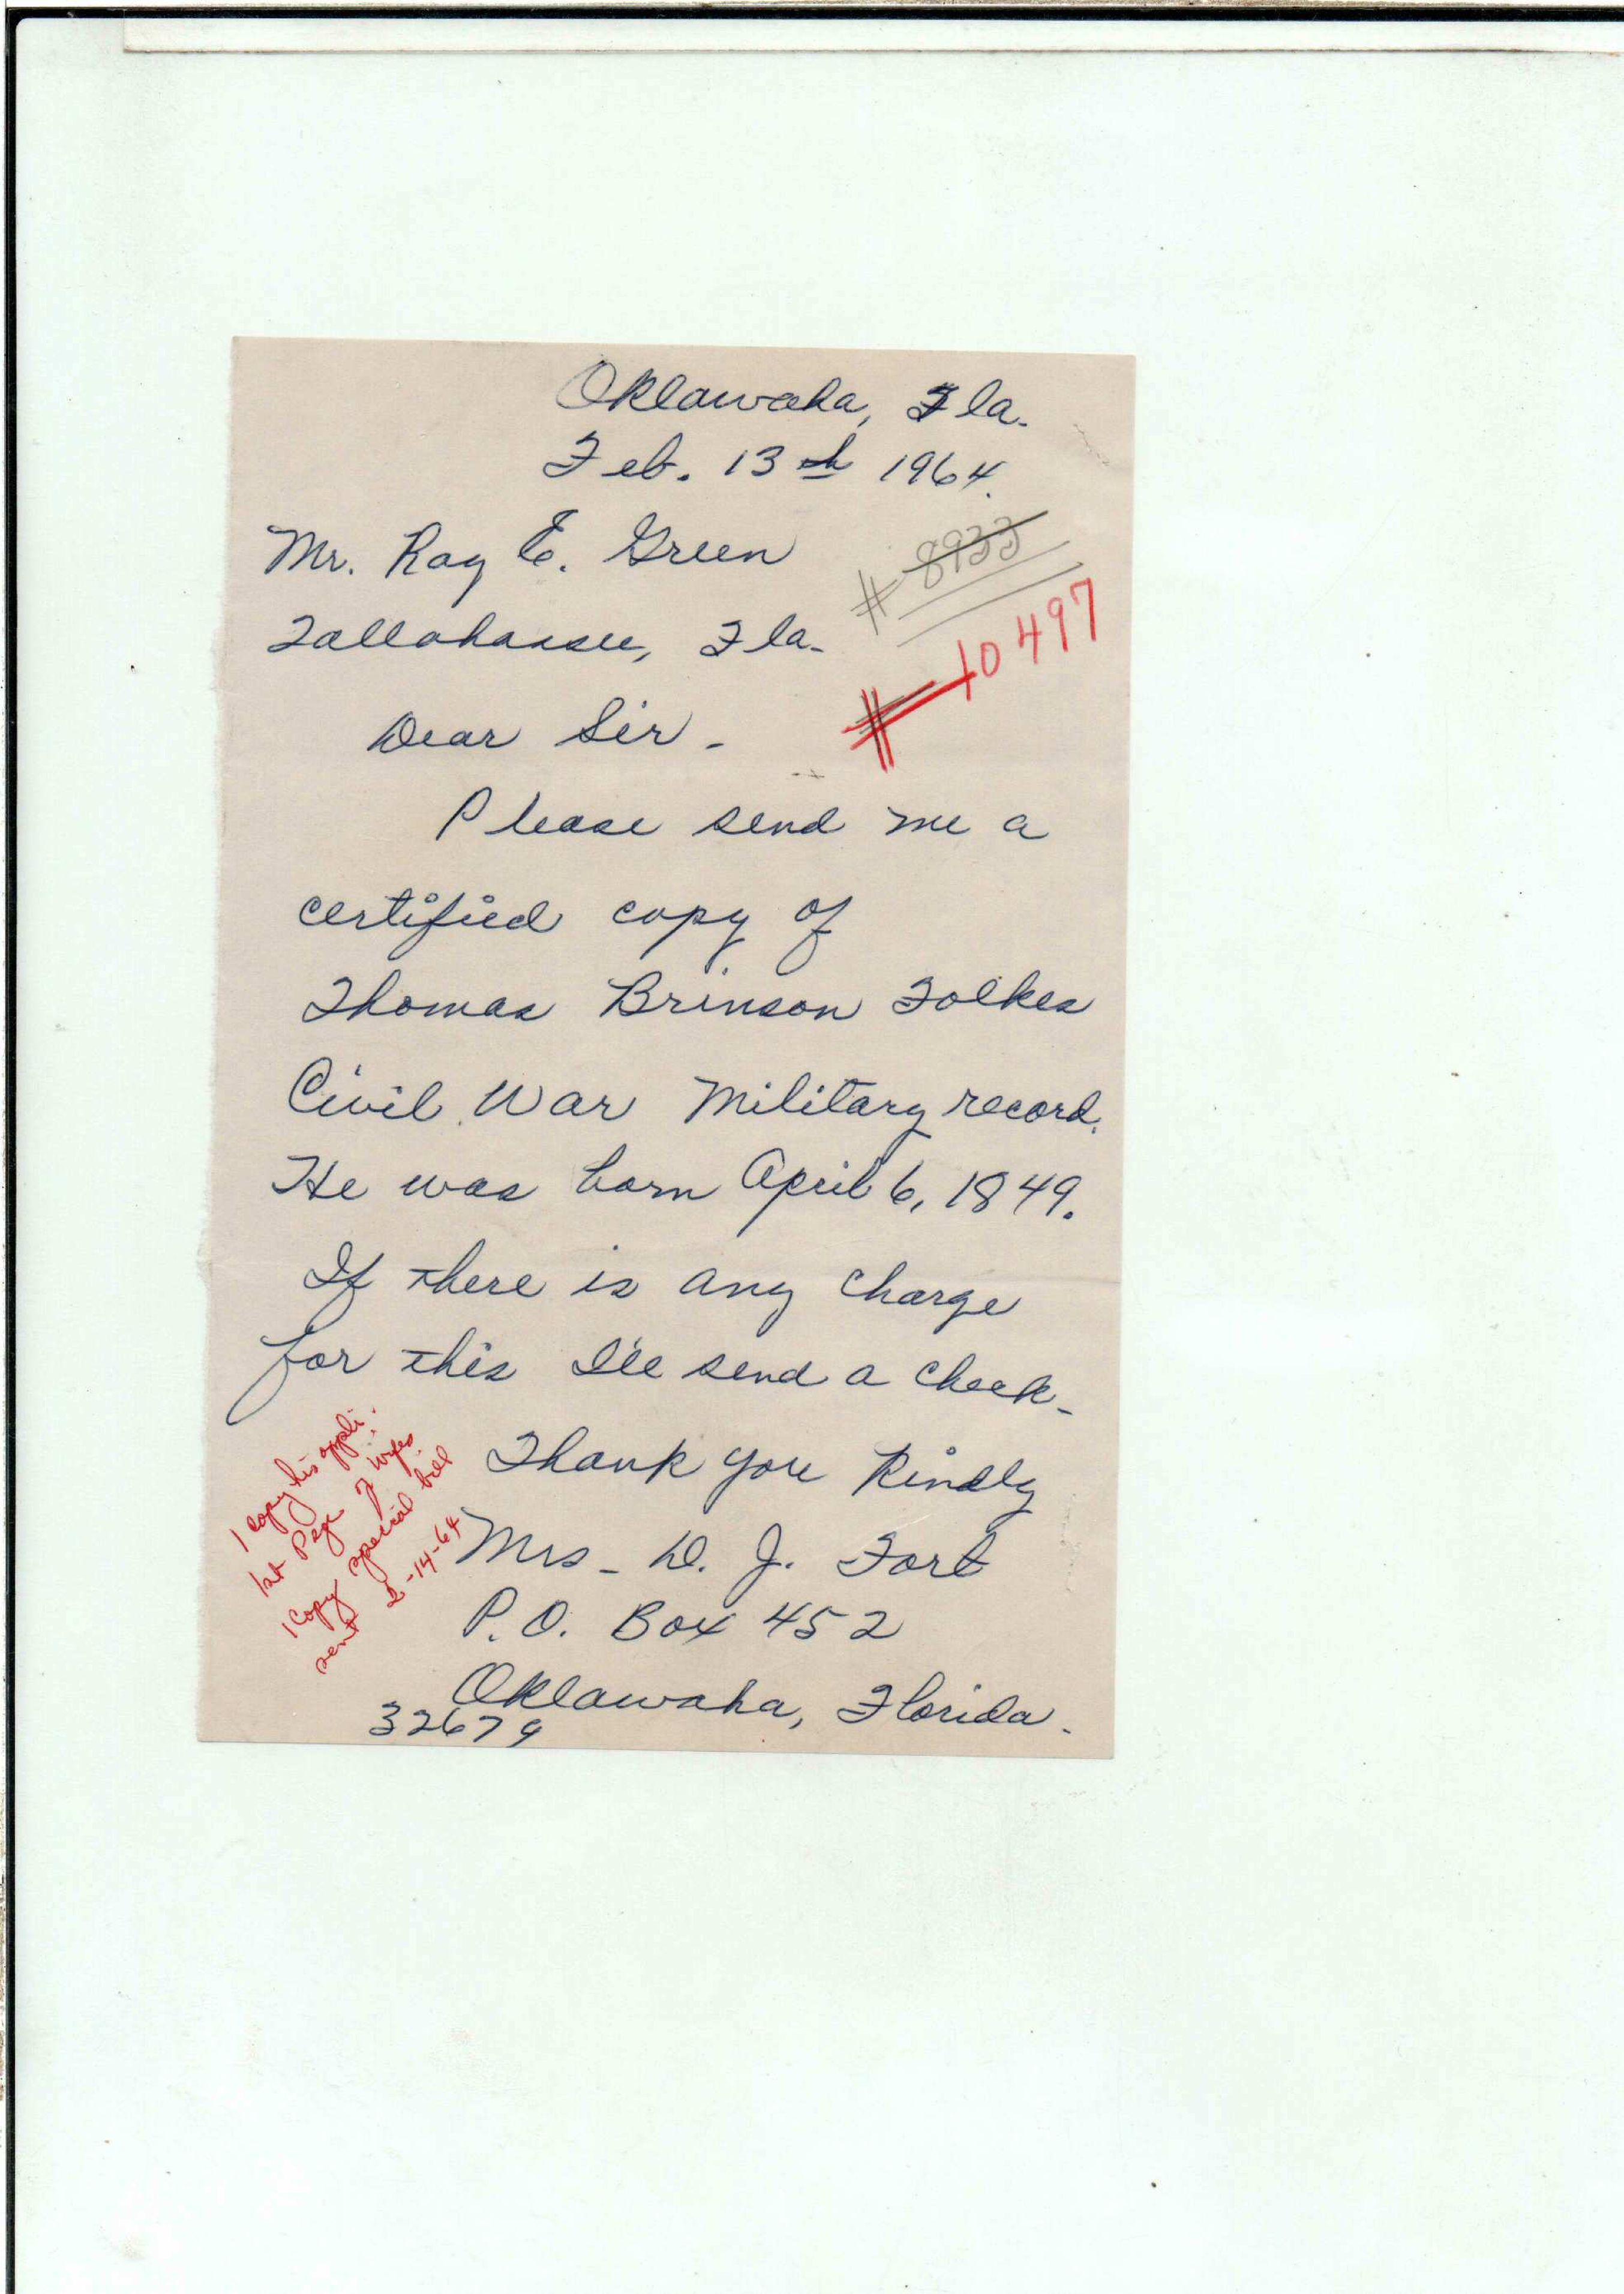 Oklawaha, Fla.
Feb. 13th 1964.
Mr. Ray E. Green
# 8933
Tallahassee, Fla.
# 10497
Dear Sir -
Please send me a
certified copy of
Thomas Brinson Folkes
Civil War Military record.
He was born April 6, 1849.
If there is any charge
for this I'll send a check -
Thank you kindly
Mrs - D. J. Fort
P.O. Box 452
Oklawaha, Florida.
32679
1 copy his appli.
1st Page of Wifes
1 copy special bill
sent 2-14-64